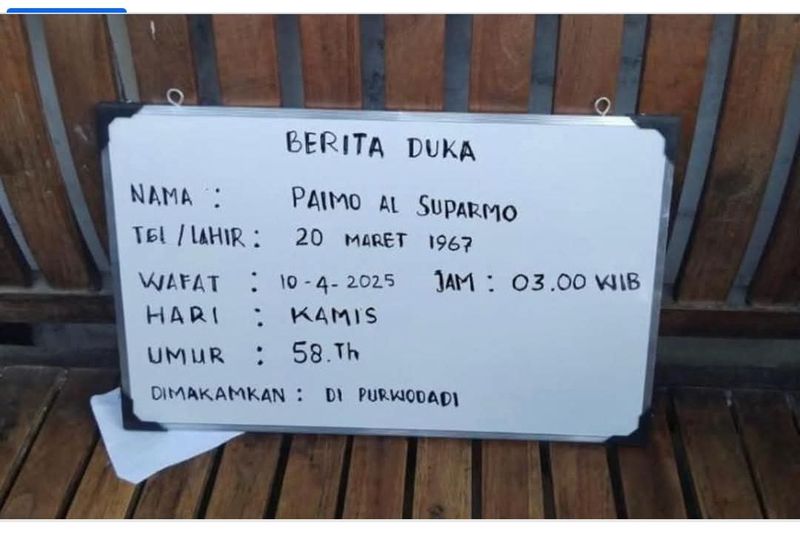 BERITA DUKA
NAMA : PAIMO AL SUPARMO
TGL / LAHIR : 20 MARET 1967
WAFAT : 10-4-2025 JAM : 03.00 WIB
HARI : KAMIS
UMUR : 58.Th
DIMAKAMKAN : DI PURWODADI